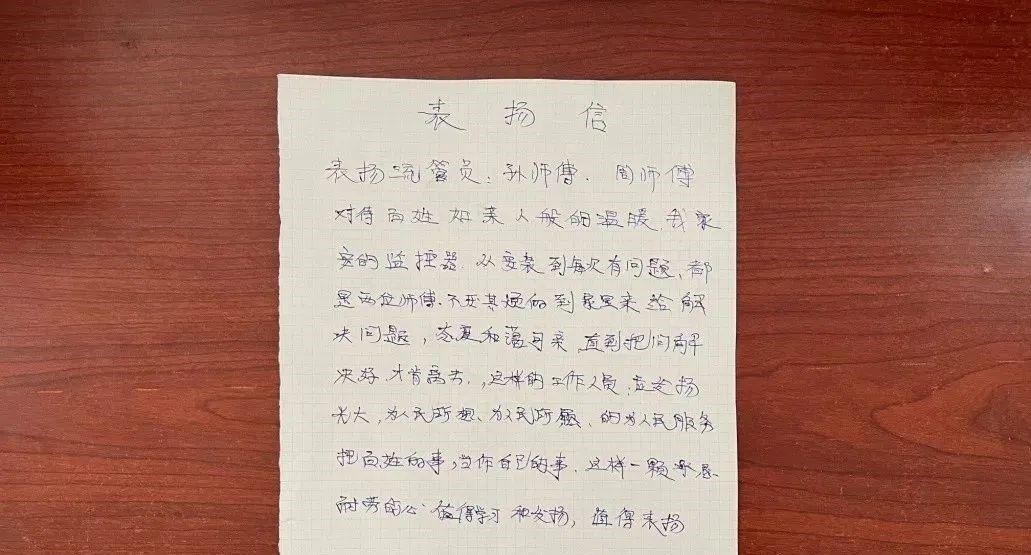 表扬信
表扬流管员：孙师傅、周师傅
对待百姓如亲人般的温暖，我家
安的监控器，从安装到每次有问题，都
是两位师傅，不厌其烦的到家里来给解
决问题，态度和蔼可亲，直到把问解
决好，才肯离去，这样的工作人员，应发扬
光大，为人民所想、为人民所愿、的为人民服务
把百姓的事，当作自己的事，这样一颗
耐劳的心 值得学习和发扬，值得表扬